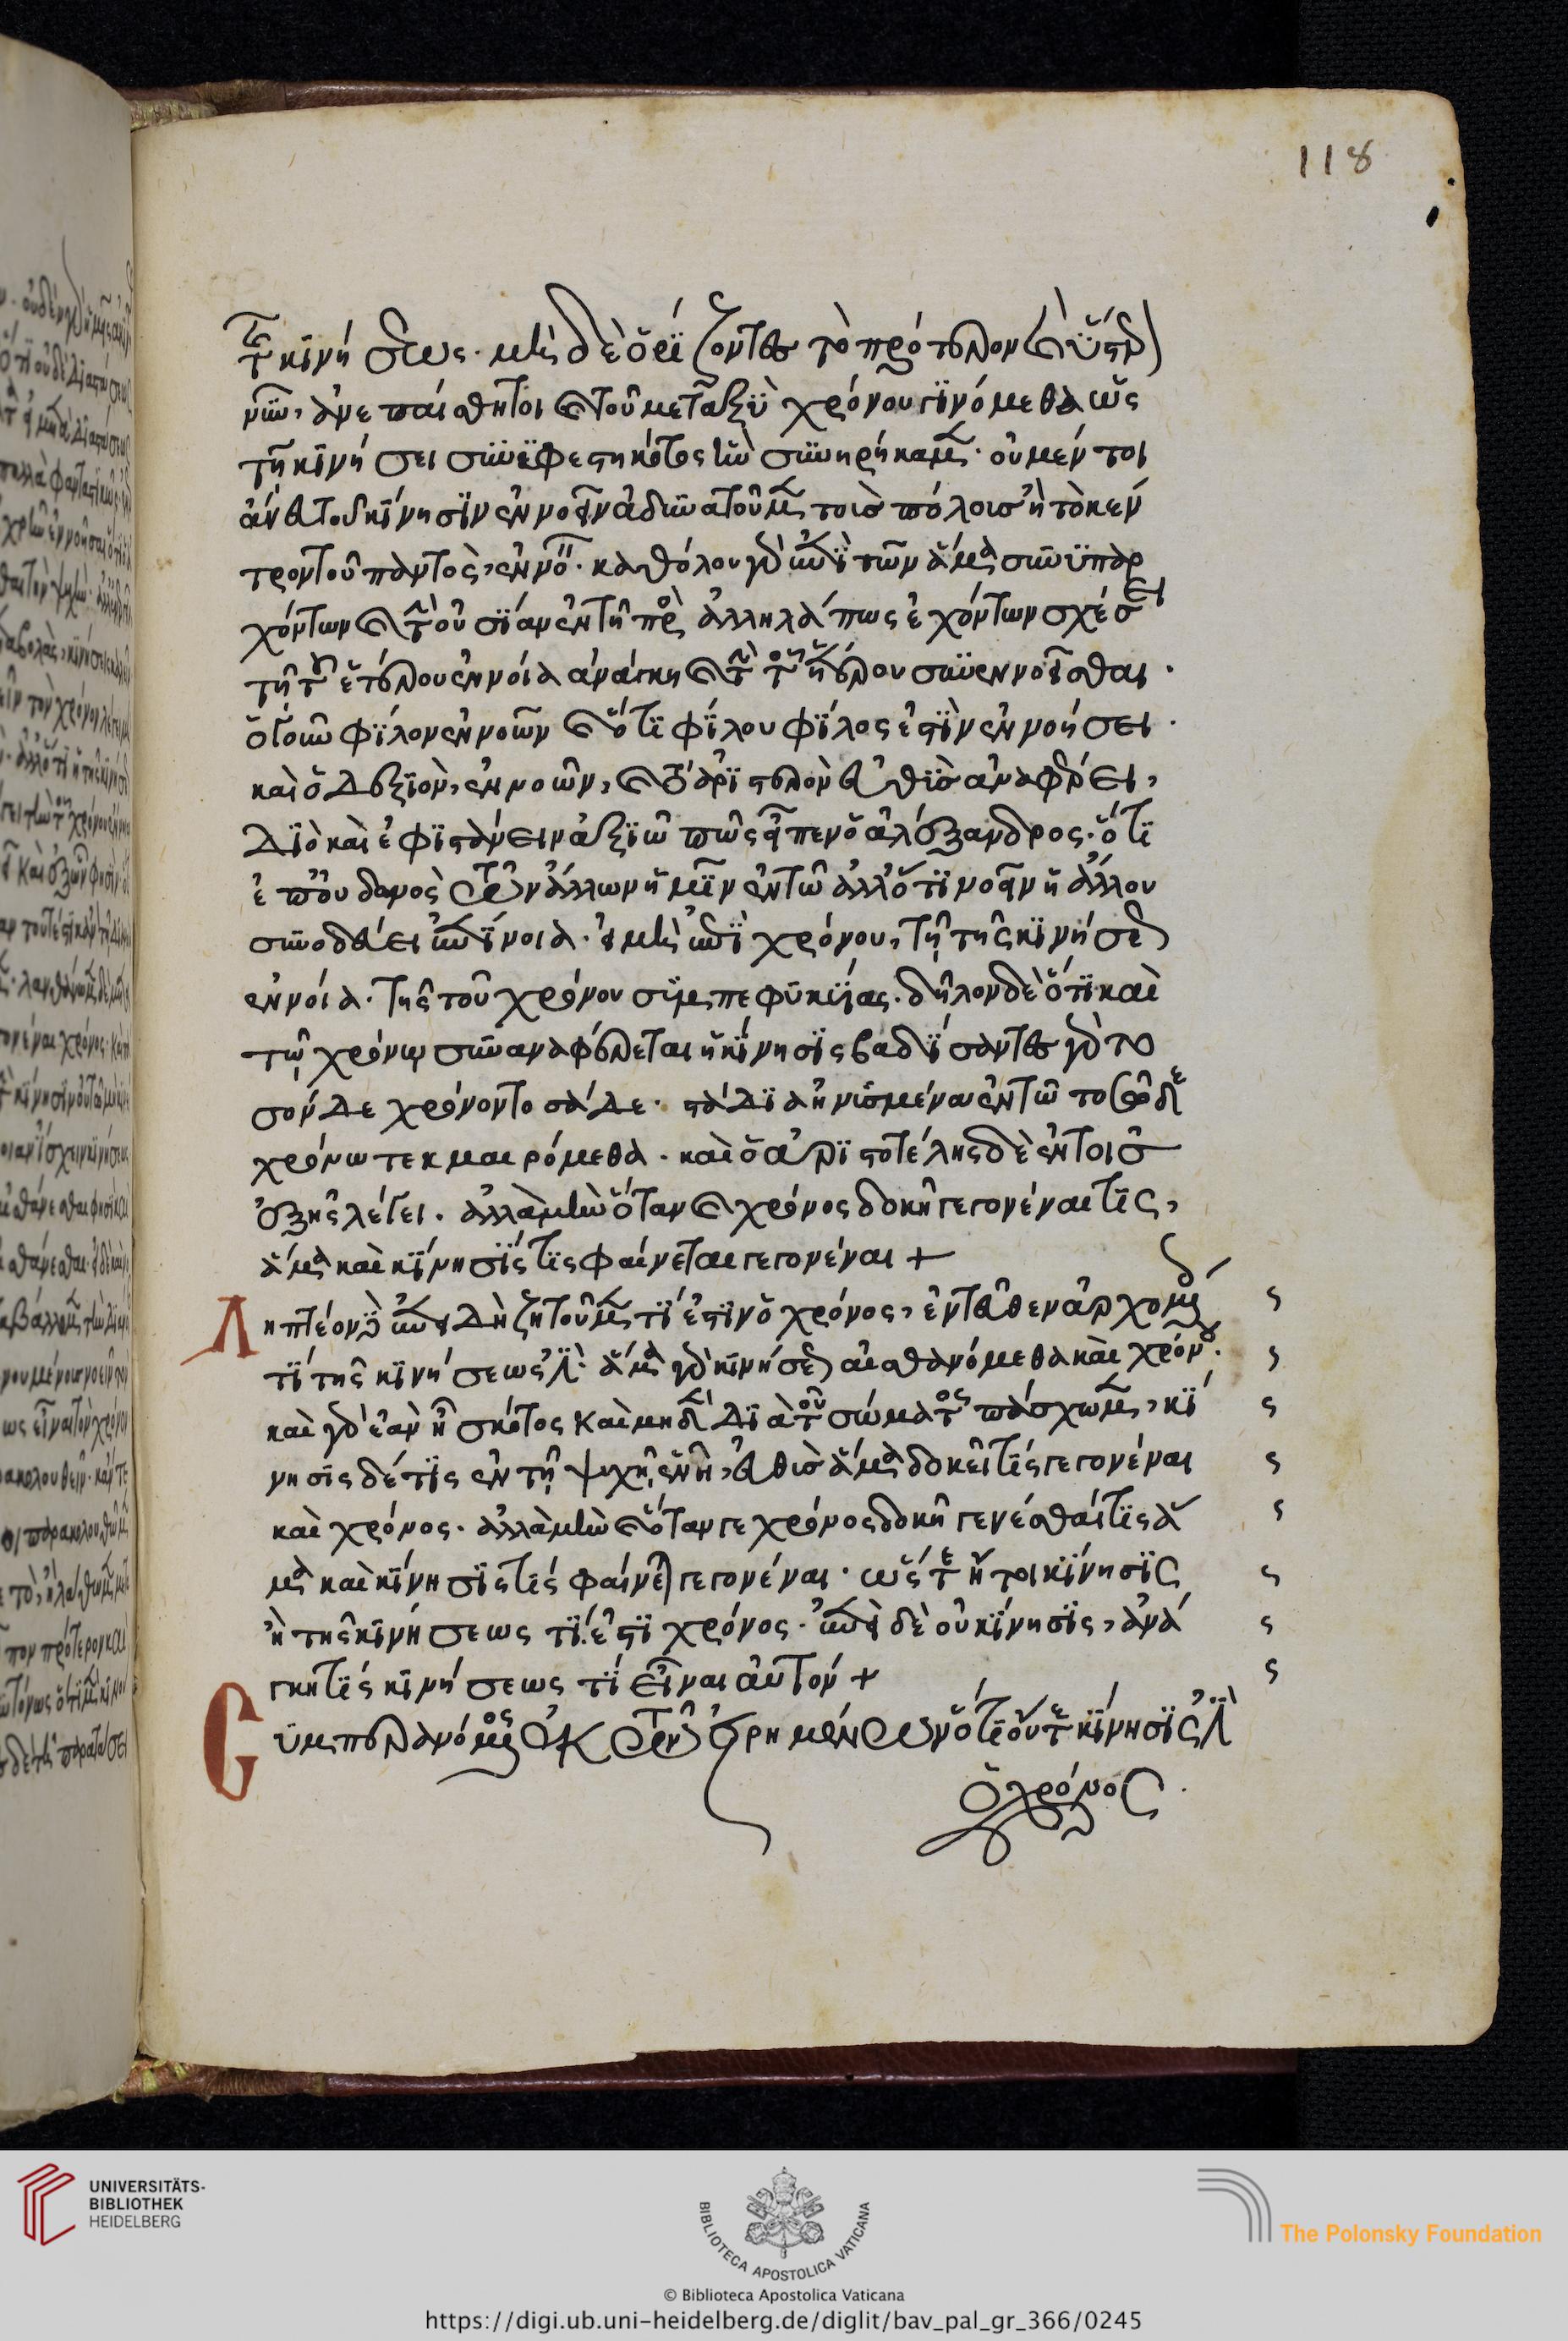 τῆς κινήσεως. μὴ δὲ ὁρίζοντες τὸ πρότερον καὶ ὕστερον
νῦν, ἀνεπαίσθητοι καὶ τοῦ μεταξὺ χρόνου γινόμεθα ὡς
τῇ κινήσει συνυφεστηκότος ἣν συνῃρήκαμεν. οὐ μέντοι
ἄνευ τοῦ κίνησιν ἐννοεῖν ἀδυνατοῦμεν τοὺς πόλους ἢ τὸ κέν
τρον τοῦ παντὸς, ἐννοεῖν. καθόλου γὰρ ἐπὶ τῶν ἅμα συνυπαρ
χόντων κατ οὐσίαν ἐν τῇ πρὸς ἄλληλά πως ἐχόντων σχέσει
τῇ τοῦ ἑτέρου ἐννοία ἀνάγκη καὶ τὴν τοῦ ἑτέρου συνεννοεῖσθαι.
ὁ γοῦν φίλον ἐννοῶν καὶ ὅτι φίλου φίλος ἐστὶν ἐννοήσει.
καὶ ὁ δεξιὸν, ἐννοῶν, καὶ τὸ ἀριστερὸν εὐθὺς ἀναφέρει,
Διὸ καὶ ἐφιστάνειν ἀξιῶ πῶς εἶπεν ὁ ἀλέξανδρος. ὅτι
ἐπ οὐδενὸς τῶν ἄλλων ἡμῖν ἐν τῷ ἄλλό τι νοεῖν ἡ ἄλλου
συνοδεύει ἐπίνοια. εἰ μὴ ἐπὶ χρόνου, τῇ τῆς κινήσεως
ἐννοία. τῆς τοῦ χρόνου συμπεφυκυίας. δῆλον δὲ ὅτι καὶ
τῷ χρόνῳ συναναφέρεται ἡ κίνησις βαδίσαντες γὰρ το
σόνδε χρόνον τοσάδε. στάδια ἠνυσμένα ἐν τῷ τοσῷδε
χρόνω τεκμαιρόμεθα. καὶ ὁ ἀριστοτέλης δὲ ἐν τοῖς
ἑξῆς λέγει. ἀλλὰ μὴν ὅταν καὶ χρόνος δοκῇ γεγονέναι τὶς,
ἅμα καὶ κίνησίς τις φαίνεται γεγονέναι +
Ληπτέον δὲ ἐπεὶ δὴ ζητοῦμεν τί ἐστιν ὁ χρόνος, ἐντεῦθεν ἀρχομένοις
τί τῆς κινήσεως ἐστί. ἅμα γὰρ κινήσεως αἰσθανόμεθα καὶ χρόνου.
καὶ γὰρ ἐὰν ᾖ σκότος καὶ μηδὲν διὰ τοῦ σώματος πάσχωμεν, κί
νησις δέ τις ἐν τῇ ψυχῇ ἐνῇ, εὐθὺς ἅμα δοκεῖ τίς γεγονέναι
καὶ χρόνος. ἀλλὰ μὴν καὶ ὅταν γε χρόνος δοκῇ γενέσθαί τις ἅ
μα καὶ κίνησίς τίς φαίνεται γεγονέναι. ὥστε ἤτοι κίνησις
ἢ τῆς κινήσεως τί ἐστι χρόνος. ἐπεὶ δὲ οὐ κίνησις, ἀνά
γκη τίς κινήσεως τί εἶναι αὐτόν +
Συμπεραινόμενος ἐκ τῶν εἰρημένων ὅτι οὔτε κίνησις ἐστὶν
ὁ χρόνος.
118
UNIVERSITÄTS-
BIBLIOTHEK
HEIDELBERG
BIBLIOTECA APOSTOLICA VATICANA
The Polonsky Foundation
© Biblioteca Apostolica Vaticana
https://digi.ub.uni-heidelberg.de/diglit/bav_pal_gr_366/0245